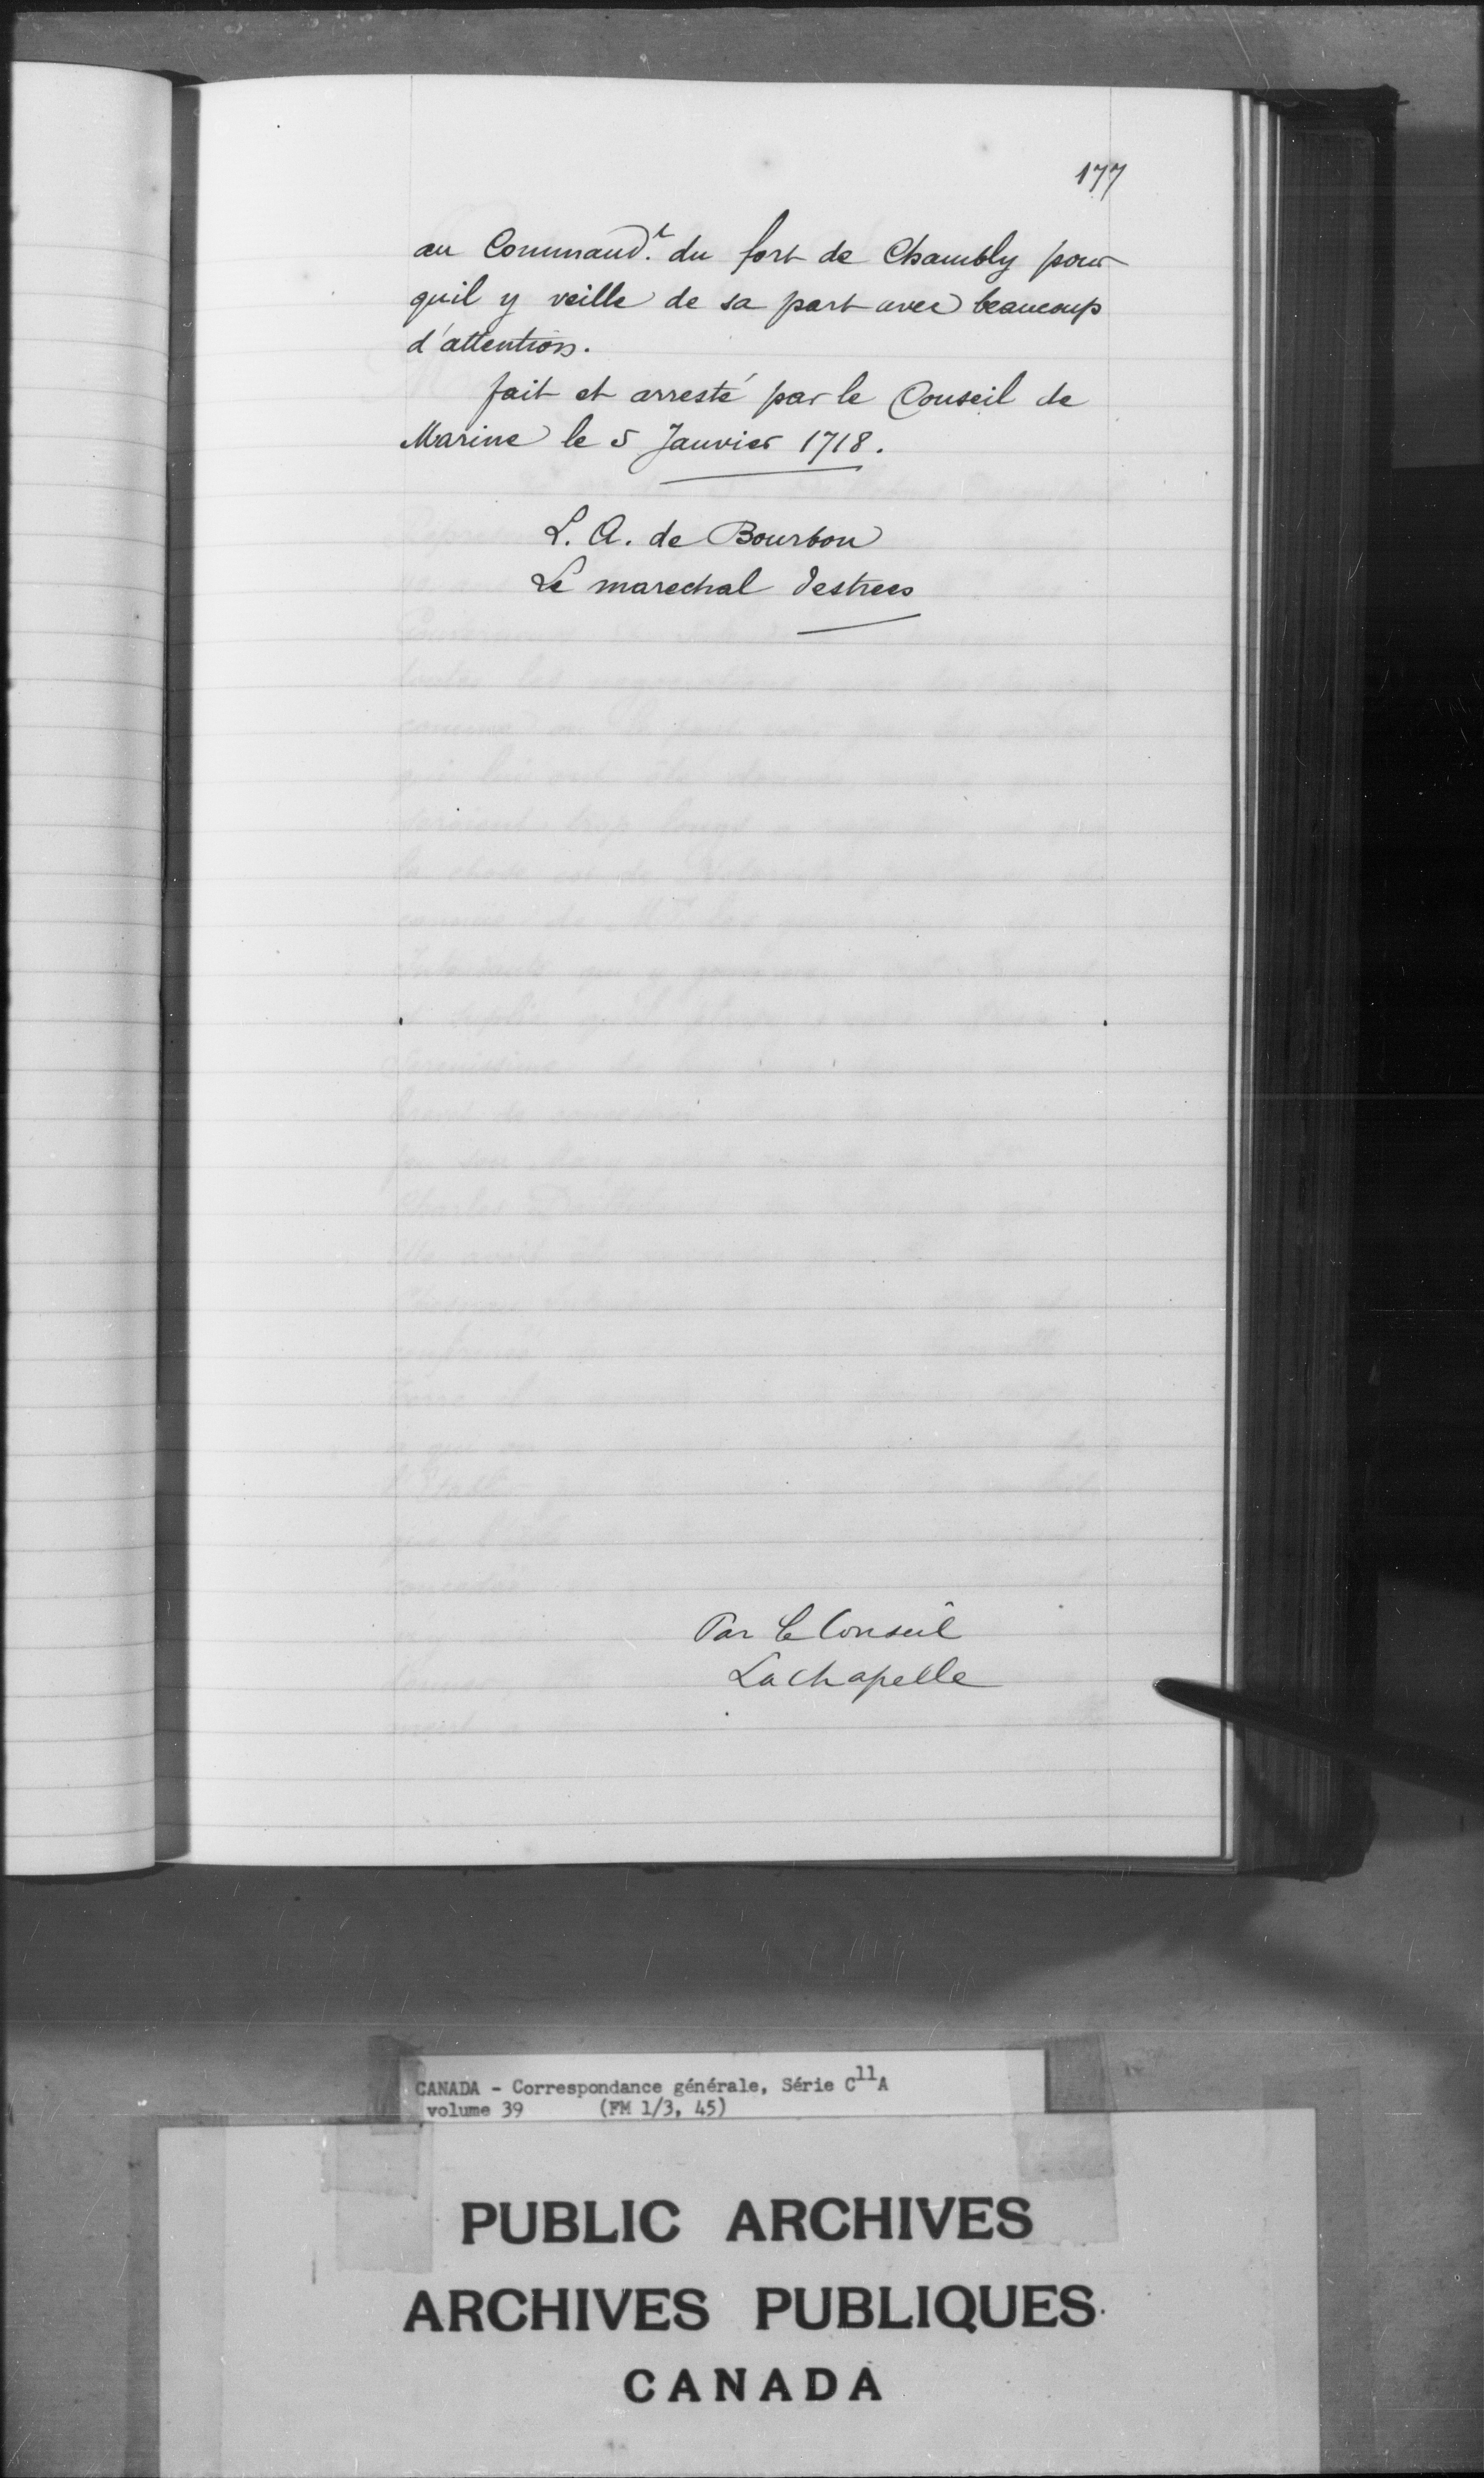 177
au Command.t du fort de Chambly pour
qu'il y veille de sa part avec beaucoup
d'attention.
fait et arresté par le Conseil de
Marine le 5 Janvier 1718.
L. A. de Bourbon
Le marechal destrees
Par le Conseil
La chapelle
CANADA - Correspondance générale, Série C11A
volume 39 (FM 1/3, 45)
PUBLIC ARCHIVES
ARCHIVES PUBLIQUES
CANADA